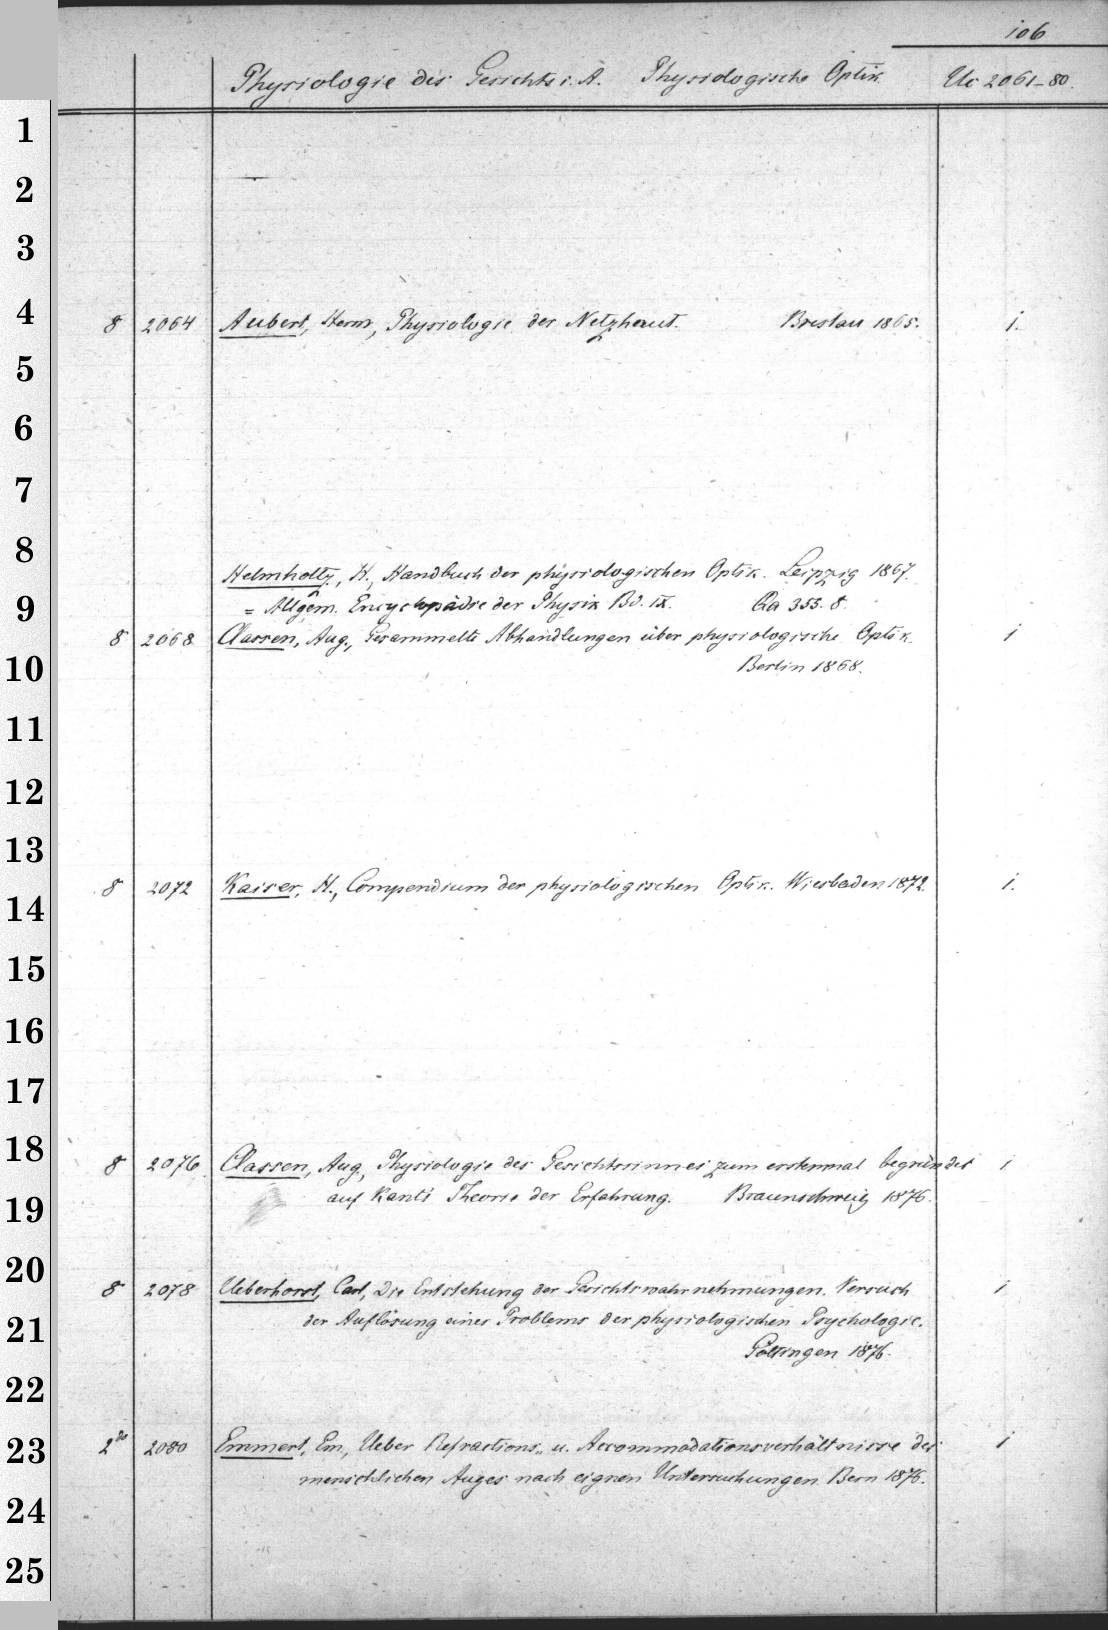 106
Physiologie des Gesichts i. A. Physiologische Optik. Uc 2061-80.
1
2
3
4 8 2064 Aubert, Herm, Physiologie der Netzhaut. Breslau 1865. j.
5
6
7
8
Helmholtz, H., Handbuch der physiologischen Optik. Leipzig 1867.
9 = Allgem. Encyclopädie der Physik Bd. IX. Qa 355. 8.
8 2068 Classen, Aug., Gesammelte Abhandlungen über physiologische Optik. j
10 Berlin 1868.
11
12
13
8 2072 Kaiser, H., Compendium der physiologischen Optik. Wiesbaden 1872. j.
14
15
16
17
18 8 2076 Classen, Aug., Physiologie des Gesichtssinnes zum erstenmal begründet j
19 auf Kants Theorie der Erfahrung. Braunschweig 1876.
20 8 2078 Ueberhorst, Carl, Die Entstehung der Gesichtswahrnehmungen. Versuch j
21 der Auflösung eines Problems der physiologischen Psychologie.
Göttingen 1876.
22
23 2do 2080 Emmert, Em, Ueber Refractions- u. Accommodationsverhältnisse des j
menschlichen Auges nach eignen Untersuchungen. Bern 1876.
24
25